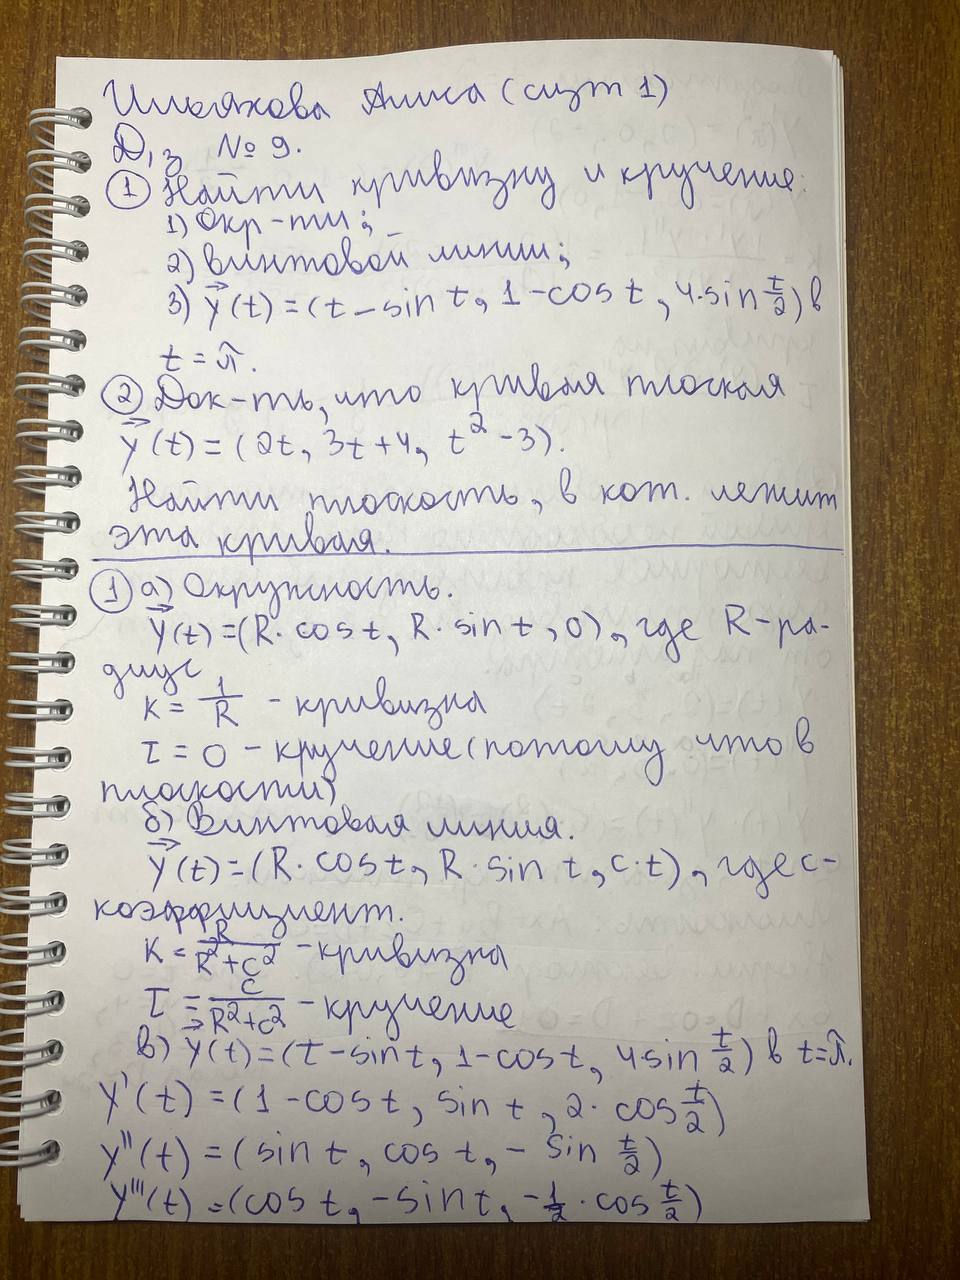 Ильякова Алиса (сизт 1)
Д/з № 9.
① Найти кривизну и кручение:
1) Окр-ти;
2) винтовой линии;
3) γ⃗(t) = (t - sin t, 1 - cos t, 4·sin t/2) в
t = π.
② Док-ть, что кривая плоская
γ⃗(t) = (2t, 3t + 4, t² - 3).
Найти плоскость, в кот. лежит
эта кривая.
① а) Окружность.
γ⃗(t) = (R·cos t, R·sin t, 0), где R - ра-
диус
K = 1/R - кривизна
τ = 0 - кручение (потому что в
плоскости)
б) Винтовая линия.
γ⃗(t) = (R·cos t, R·sin t, c·t), где c -
коэффициент.
K = R/(R² + c²) - кривизна
τ = c/(R² + c²) - кручение
в) γ⃗(t) = (t - sin t, 1 - cos t, 4 sin t/2) в t = π.
γ'(t) = (1 - cos t, sin t, 2·cos t/2)
γ''(t) = (sin t, cos t, - sin t/2)
γ'''(t) = (cos t, - sin t, - 1/2 · cos t/2)